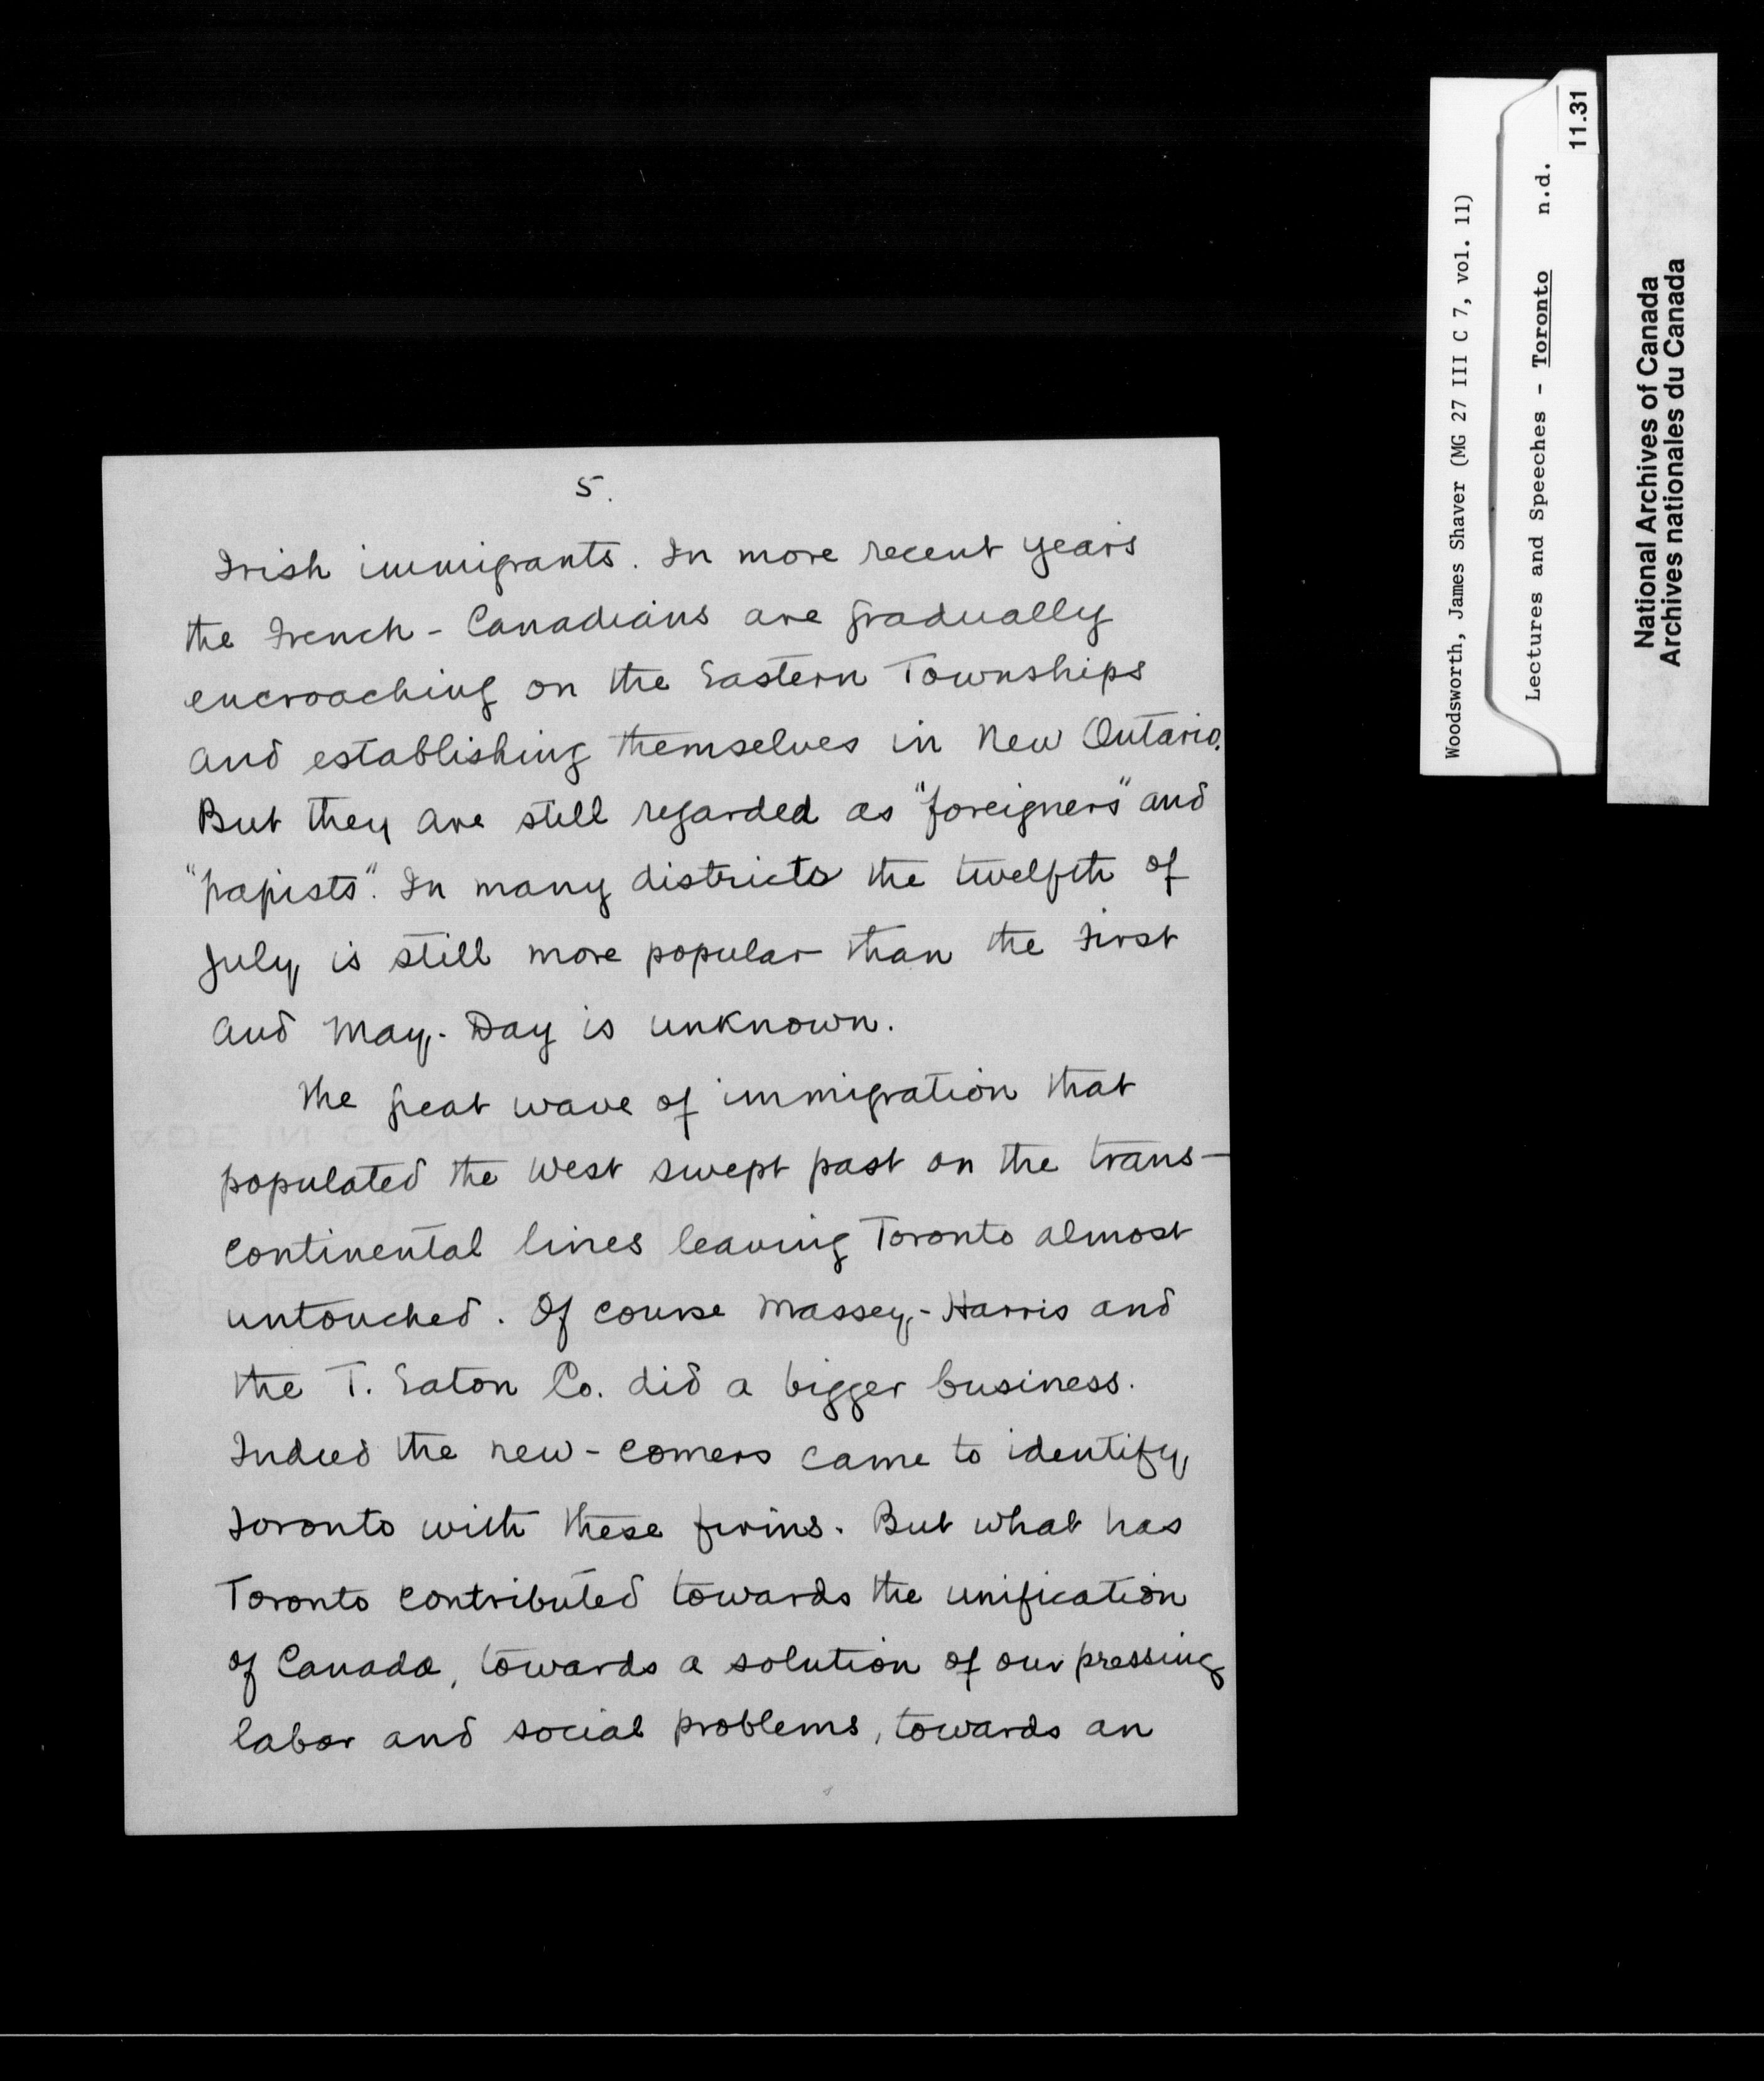 5.
Irish immigrants. In more recent years
the French-Canadians are gradually
encroaching on the Eastern Townships
and establishing themselves in New Ontario.
But they are still regarded as "foreigners" and
"papists". In many districts the twelfth of
July is still more popular than the first
and May-Day is unknown.
The great wave of immigration that
populated the West swept past on the trans-
continental lines leaving Toronto almost
untouched. Of course Massey-Harris and
the T. Eaton Co. did a bigger business.
Indeed the new-comers came to identify
Toronto with these firms. But what has
Toronto contributed towards the unification
of Canada, towards a solution of our pressing
labor and social problems, towards an
Woodsworth, James Shaver (MG 27 III C 7, vol. 11)
Lectures and Speeches - Toronto n.d.
11.31
National Archives of Canada
Archives nationales du Canada